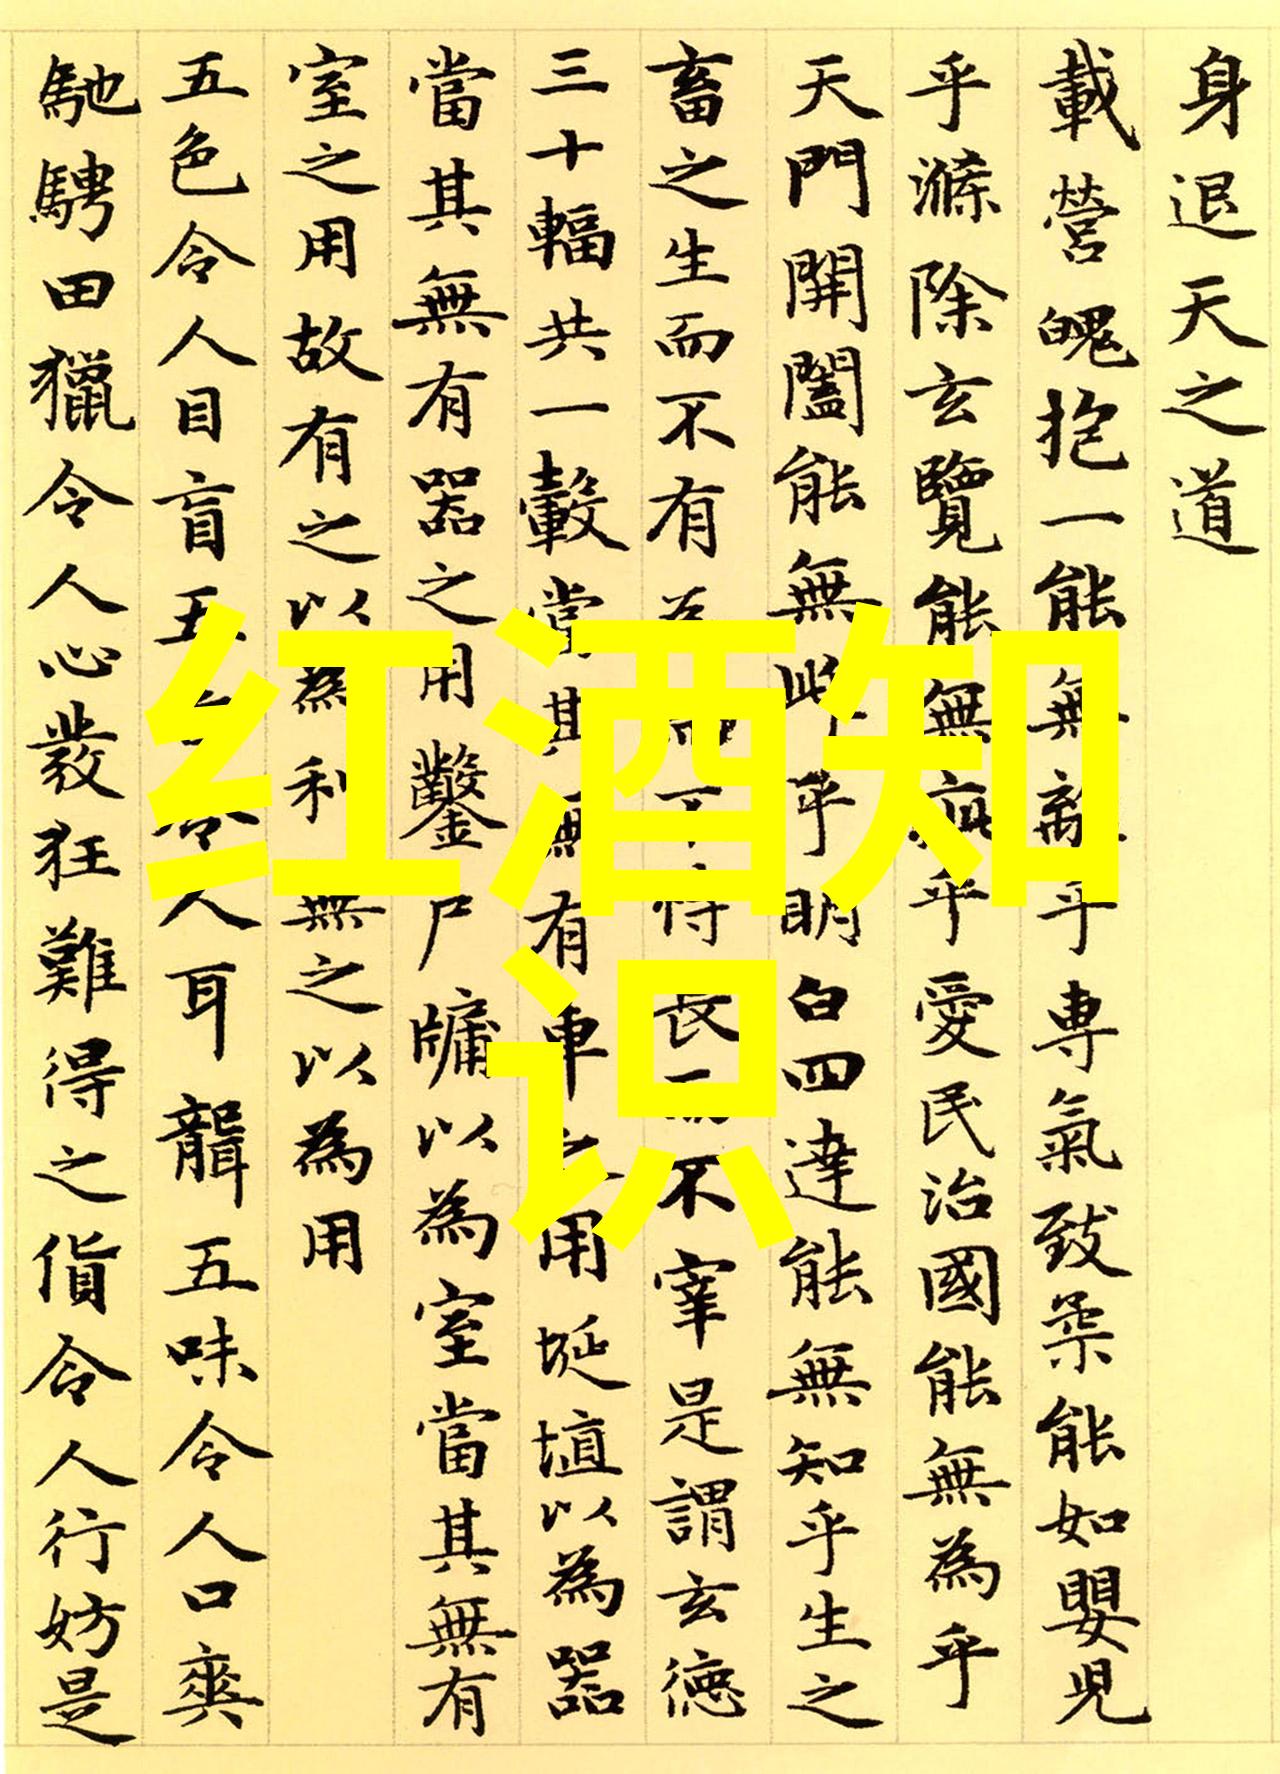 身退天之道
載營魄抱一能無離乎專氣致柔能如嬰兒
乎滌除玄覽能無疵乎愛民治國能無為乎
天門開闔能無雌乎明白四達能無知乎生之
畜之生而不有為而不恃長而不宰是謂玄德
三十輻共一轂當其無有車之用埏埴以為器
當其無有器之用鑿戶牖以為室當其無有
室之用故有之以為利無之以為用
五色令人目盲五音令人耳聾五味令人口爽
馳騁田獵令人心發狂難得之貨令人行妨是
红酒知
识